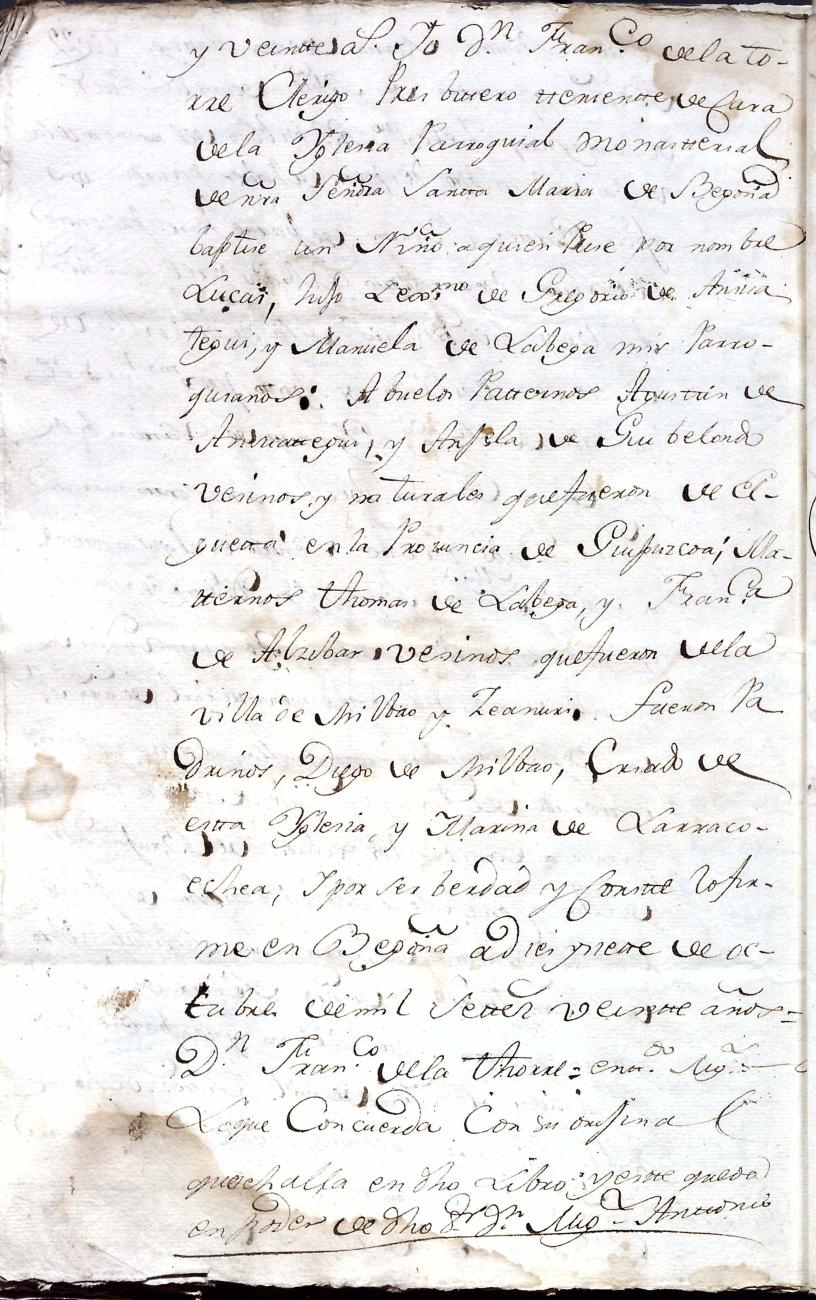 y veintte as. Yo Dn. Franco. dela to-
rre Clerigo Presbittero tteniente, de Cura
dela Yglesia Parroquial Monasterial
de ñra Señora Santta Maria de Begoña
baptise un Niño, aquien Puse por nombre
Lucas, hijo Lexmo. de Gregorio de Arria
tegui, y Manuela de Labega mis Parro-
quianos: Abuelos Patternos Agusttin de
Arriattegui, y Anjela de Guibelond
vesinos, y naturales quefueron de El-
guetta en la Provincia de Guipuzcoa; Ma-
tternos thomas de Labega, y Franca.
de Alzibar vesinos quefueron dela
villa de Milbao y Zeanuri. fueron Pa
drinos, Diego de Milbao, Criado de
estta Yglesia, y Marina de Larraco-
echea; Y por ser berdad y Constte lo fir-
me en Begoña a dies y siette de oc-
tubre de mil Settez veintte años =
Dn. Franco. dela thorre = enmdo. Migl.
Loque Concuerda Con su orijinal
quesehalla en dho Libro; y estte queda
en poder de dho Sr. Dn. Migl. Anttonio